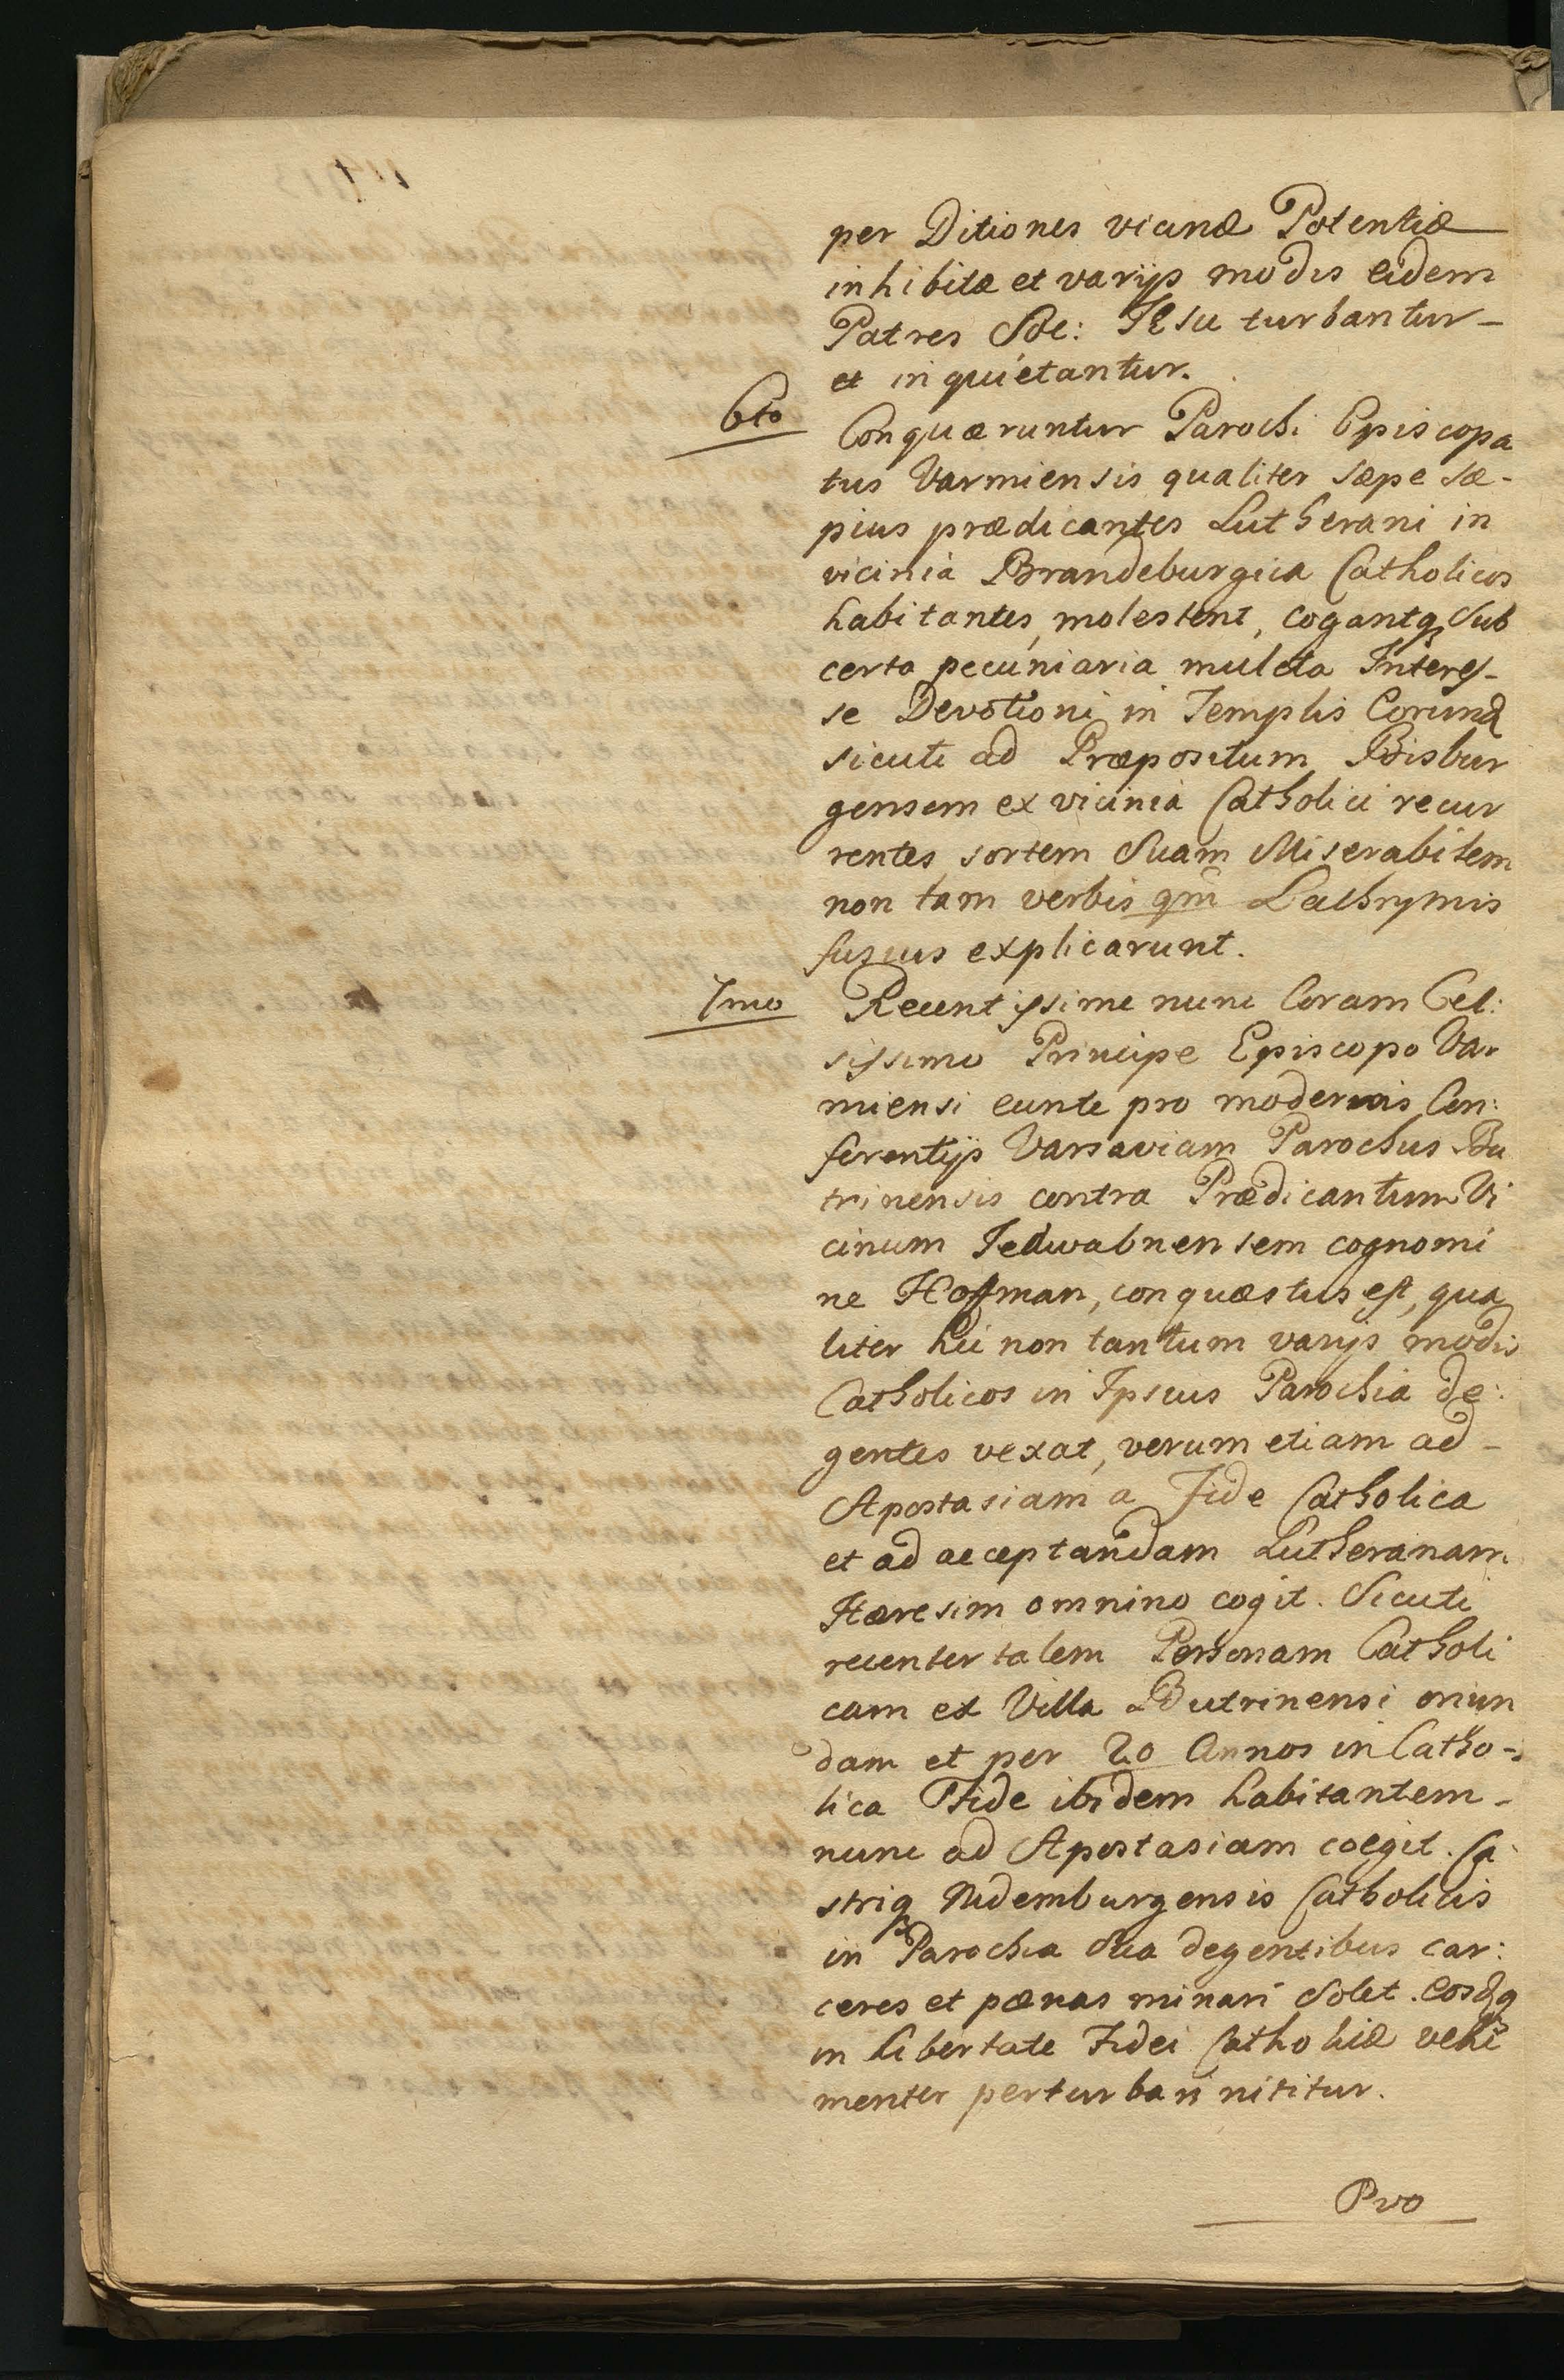 per Ditiones vicinæ Potentiæ
inhibitæ et varijs modis eidem
Patres Soc: Jesu turbantur –
et inquietantur.
6to Conquæruntur Parochi Episcopa
tus Varmiensis qualiter sæpe sæ-
pius prædicantes Lutherani in
vicinia Brandeburgica Catholicos
habitantes, molestent, cogantq sub
certa pecuniaria mulcta Interes-
se Devotioni in Templis Eorund
sicuti ad Præpositum Bisbur
gensem ex vicinia Catholici recur
rentes, sortem Suam Miserabilem
non tam verbis qm Lachrymis
fusius explicarunt.
7mo Recentissime nunc Coram Cel:
sissimo Principe Episcopo Var
miensi eunte pro modernis Con:
ferentijs Varsaviam Parochus Bu
trinensis contra Prædicantum Vi
cinum Jedwabnensem cognomi
ne Hoffman, conquæstus est, qua
liter hic non tantum varijs modis
Catholicos in Ipsius Parochia de:
gentes vexat, verum etiam ad –
Apostasiam a Fide Catholica
et ad acceptandam Lutheranam
Hæresim omnino cogit. Sicuti
recenter talem Personam Catholi
cam ex Villa Butrinensi oriun
dam et per 20 Annos in Catho-
lica Fide ibidem habitantem –
nunc ad Apostasiam coegit. Ca
striq Nidemburgensis Catholicis
in Parochia Sua degentibus car:
ceres et pænas minari Solet.
in libertate Fidei Catholicæ vehe
menter perturbari nititur.
Pro